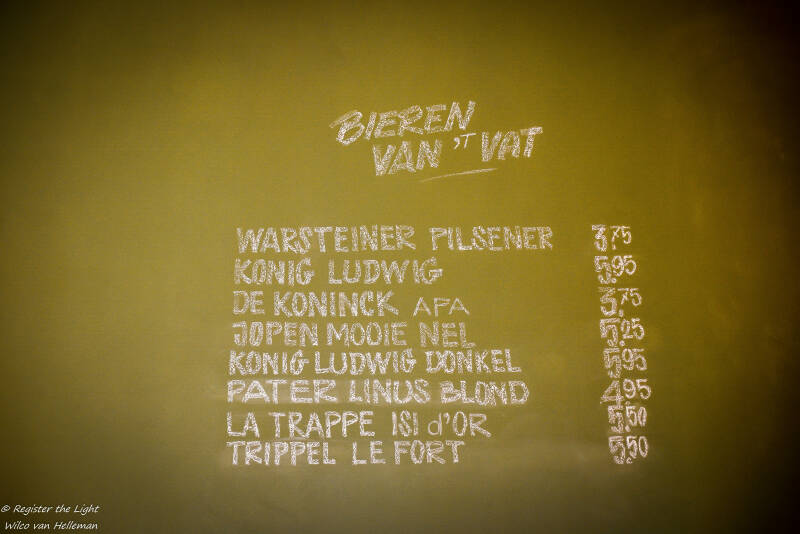 BIEREN
VAN 'T VAT
WARSTEINER PILSENER 3,75
KONIG LUDWIG 5,95
DE KONINCK APA 3,75
JOPEN MOOIE NEL 5,25
KONIG LUDWIG DONKEL 5,95
PATER LINUS BLOND 4,95
LA TRAPPE ISI d'OR 5,50
TRIPPEL LE FORT 5,50
© Register the Light
Wilco van Helleman